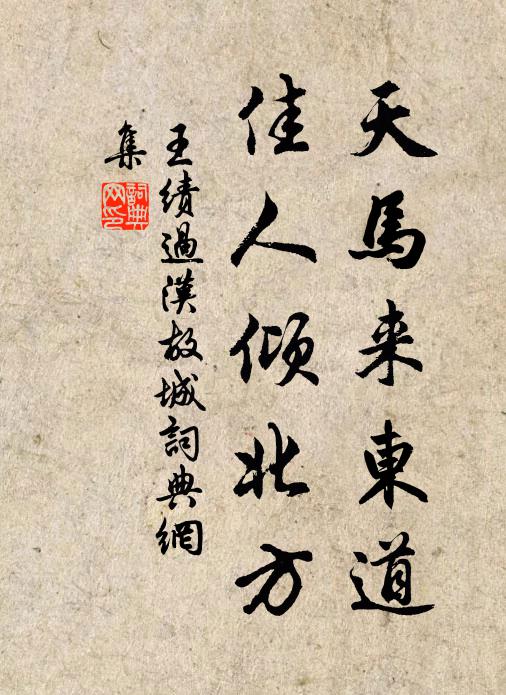 天馬来東道
佳人傾北方
王績過漢故城詞典網
集
詞典
网印